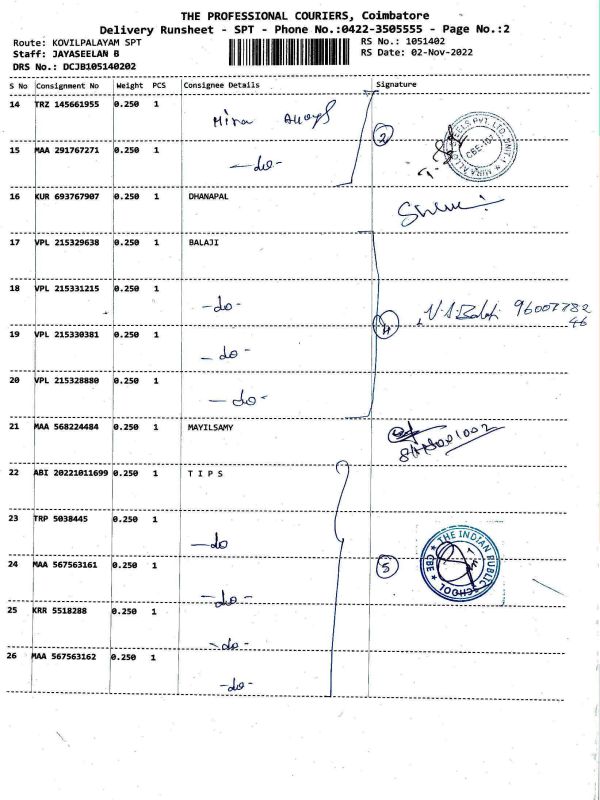 THE PROFESSIONAL COURIERS, Coimbatore
Delivery Runsheet - SPT - Phone No.:0422-3505555 - Page No.:2
Route: KOVILPALAYAM SPT
Staff: JAYASEELAN B
DRS No.: DCJB105140202
RS No.: 1051402
RS Date: 02-Nov-2022
S No Consignment No Weight PCS Consignee Details Signature
14 TRZ 145661955 0.250 1 Mira Alloys
2
15 MAA 291767271 0.250 1 -do-
16 KUR 693767907 0.250 1 DHANAPAL
17 VPL 215329638 0.250 1 BALAJI
18 VPL 215331215 0.250 1 -do-
4
19 VPL 215330381 0.250 1 -do-
20 VPL 215328880 0.250 1 -do-
21 MAA 568224484 0.250 1 MAYILSAMY
22 ABI 20221011699 0.250 1 T I P S
23 TRP 5038445 0.250 1 -do
24 MAA 567563161 0.250 1 -do-
5 THE INDIAN PUBLIC SCHOOL * CBE *
25 KRR 5518288 0.250 1 -do-
26 MAA 567563162 0.250 1 -do-